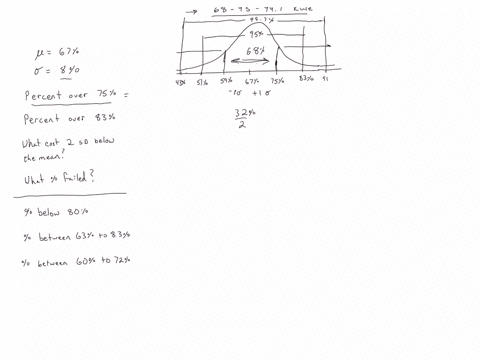 → 68 - 95 - 99.7 Rule
99.7%
95%
68%
43% 51% 59% 67% 75% 83% 91
-1σ +1σ
32%
2
μ = 67%
σ = 8%
Percent over 75% =
Percent over 83%
What cost 2 SD below
the mean?
What % failed?
% below 80%
% between 63% to 83%
% between 60% to 72%